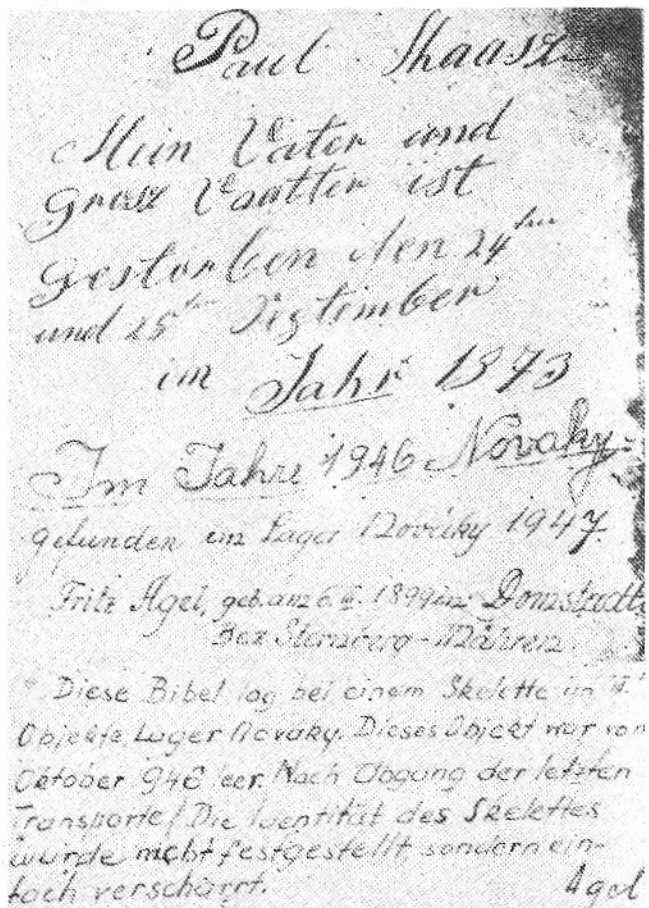 Paul Skaasz
Mein Vater und
Grosz Vaatter ist
Gestorben den 24ten
und 25ten Diztember
im Jahr 1873
Im Jahre 1946 Novaky
gefunden im Lager Nováky 1947
Fritz Agel, geb. am 6. 1899 in Domstadtl
Bez Sternberg - Mähren
Diese Bibel lag bei einem Skelette im
Objekte, Lager Novaky. Dieses Objekt war von
Oktober 946 leer. Nach Abgang der letzten
Transporte / Die Identität des Skelettes
wurde nicht festgestellt, sondern ein-
fach verscharrt. Agel